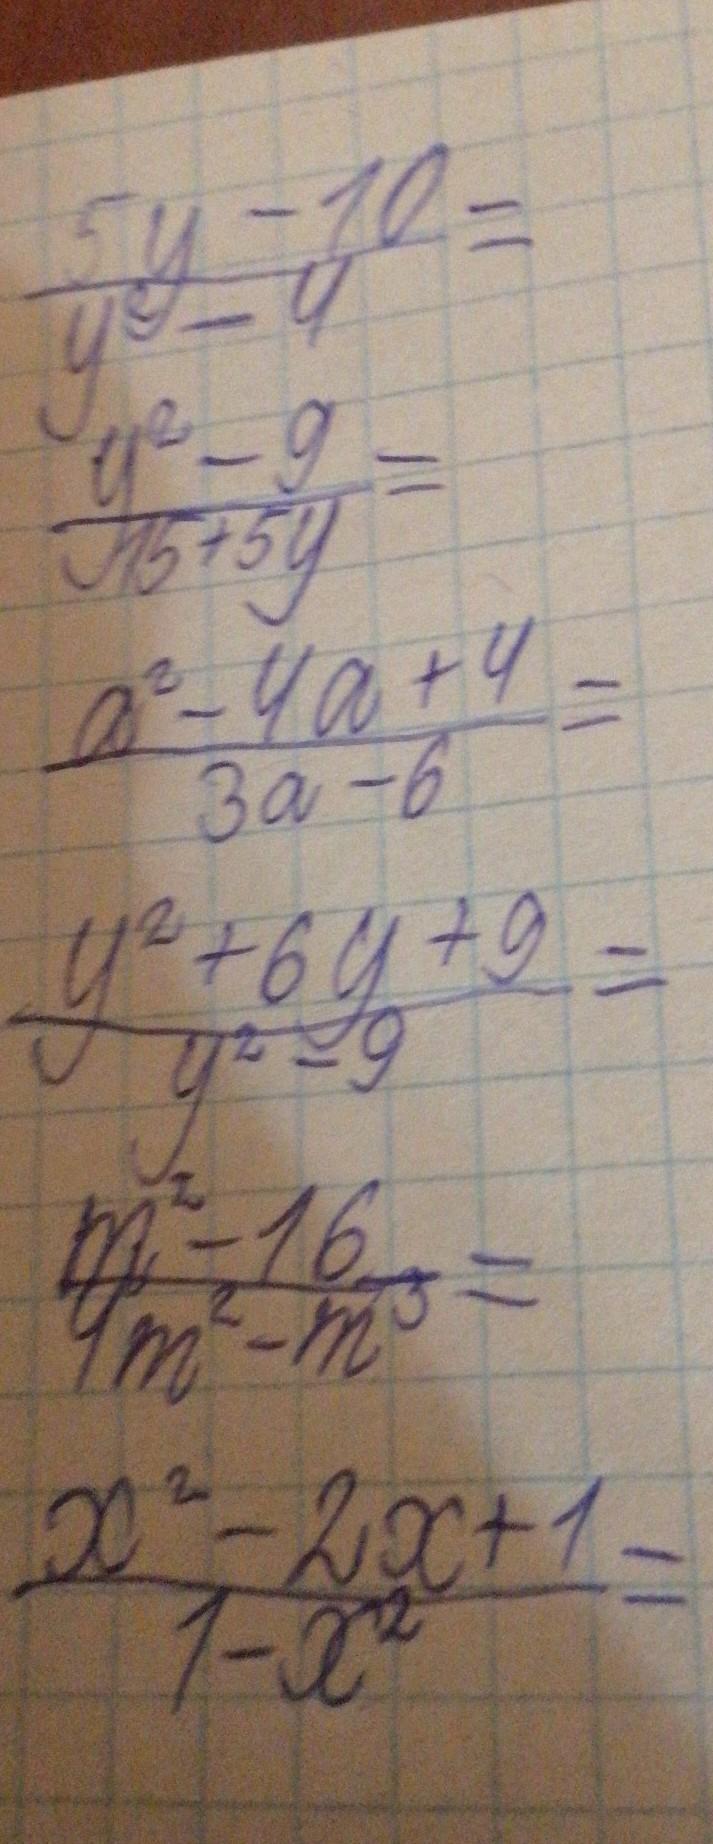 5y - 10 =
y² - 4
y² - 9 =
15 + 5y
a² - 4a + 4 =
3a - 6
y² + 6y + 9 =
y² - 9
m² - 16 =
4m² - m³
x² - 2x + 1 =
1 - x²